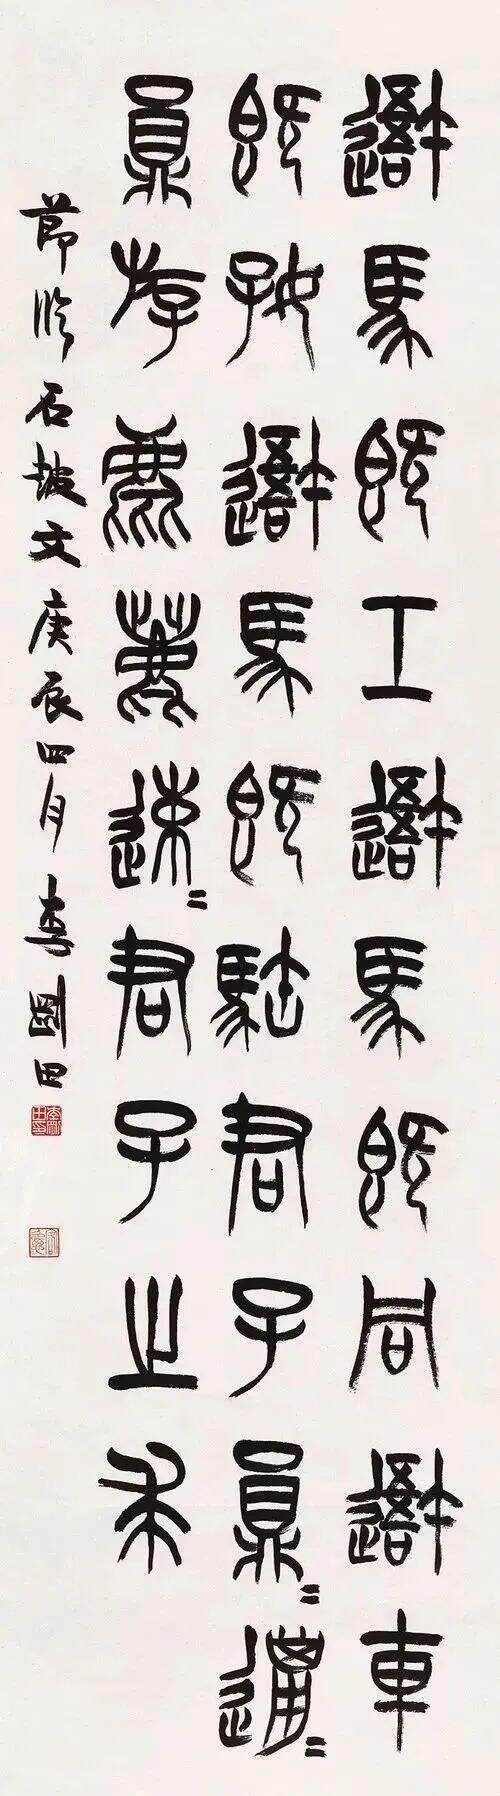 吾馬既工吾馬既同吾車
既好吾馬既君子員＝邋＝
員斿麀鹿速＝君子之求
節臨石皷文庚辰四月李剛田